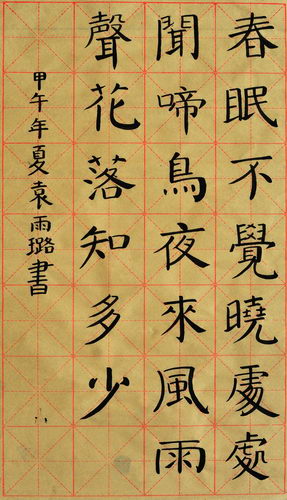 春眠不覺曉處處
聞啼鳥夜來風雨
聲花落知多少
甲午年夏袁雨璐書